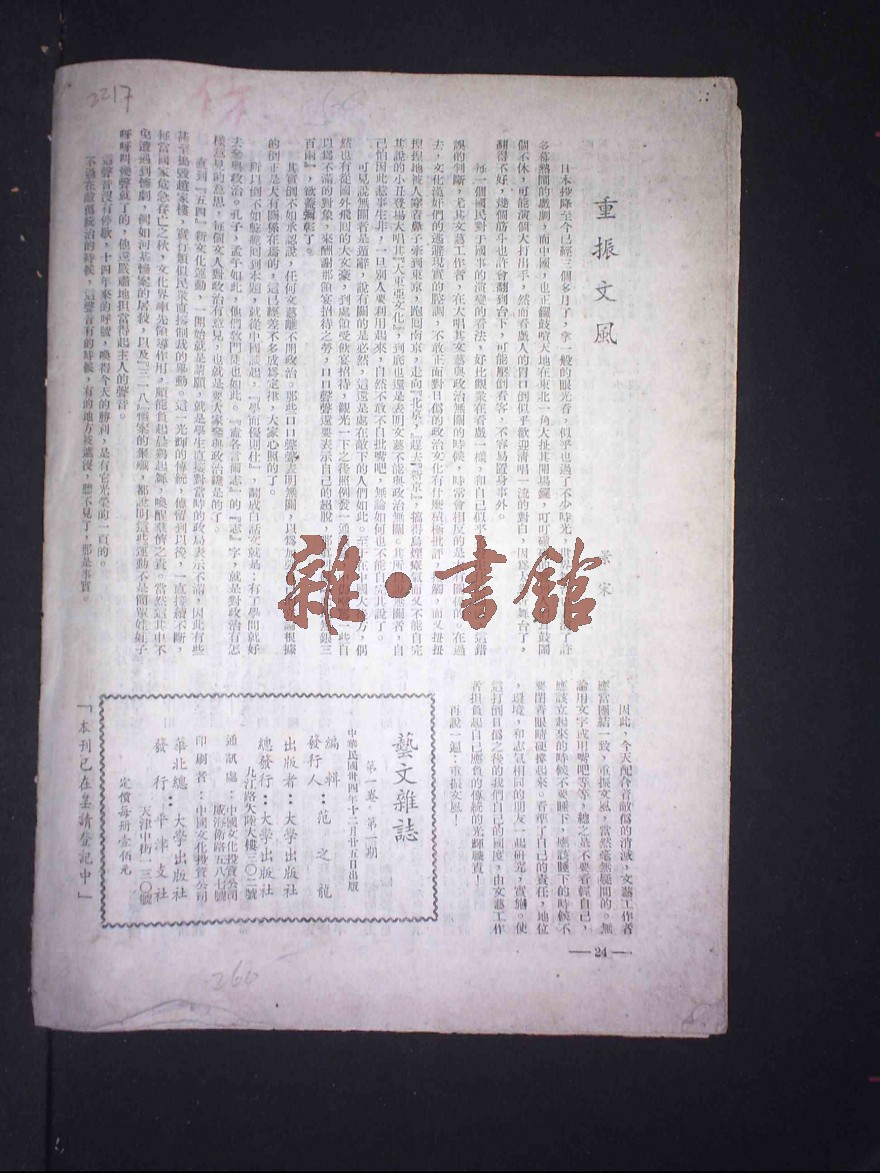 2217
重振文風
景宋
日本投降至今已經三個多月了，拿一般的眼光看，似乎也過了不少時光，
多幕熱鬧的戲劇，而中國，也正鑼鼓喧天地在東北一角大排其開場鑼，
個不休，可能演個大打出手，然而看戲人的胃口倒似乎歡迎清唱一流的對白，
翻得不好，幾個筋斗也許會翻到台下，可能壓倒看客，不容易置身事外。
每一個國民對于國事的演變的看法，好比觀衆在看戲一樣，和自己似乎
誤的個斷，尤其文藝工作者，在大唱其文藝與政治無關的時候，時常會相反的是
去，文化漢奸們的逃避現實的腔調，不敢正面對日僞的政治文化有什麼積極批評
捏捏地被人穿着鼻子牽到東京，跑回南京，走向『北京』，趕去『新京』，搞得烏煙瘴氣而又不能自完
其說的小丑登場大唱其『大東亞文化』，到底也還是表明文藝不能與政治無關。其所
己怕因此惹事生非，一旦別人要利用起來，自然不敢不自批嘴吧，無論如何也不能自完其說了。
可見說無關者是遁辭，說有關的是必然，這還是處在敵下的人們如此。至
然也有從國外飛回的大文豪，到處領受飲宴招待，觀光一下之後照例發一通
以爲不滿的對象，來酬謝那頓宴招待之勞，口口聲聲還要表示自己的超脫，
百兩』，欲蓋彌彰了。
其實倒不如承認說，任何文藝離不開政治。那些口口聲聲表明無關，以爲
的倒正是大有關係在焉的，這已經差不多成爲定律，大家心照的了。
所以倒不如乾脆回到本題，就從中國談起，『學而優則仕』，翻成白話文就是：有了學問就好
去參與政治。孔子，孟子如此，他們教門徒也如此。『盍各言爾志』的『志』字，就是對政治有怎
樣意見的意思，每個文人對政治有意見，也就是要大家參與政治纔是的了。
直到『五四』新文化運動，一開始就是請願，就是學生直接對當時的政局表示不滿，因此有些
甚至搗毀趙家樓，實行類似民衆直接制裁的舉動。這一光輝的傳統，傳留到以後，一直接續不斷，
每當國家危急存亡之秋，文化界率先領導作用，願能負起烏鷄起舞，喚醒羣倩之責。當然這其中不
免遭遇到慘劇，例如河基慘案的屠殺，以及『三一八』慘案的犧牲，都說明這些運動不是簡單娃娃子
呼呼叫幾聲就了的，他還嚴肅地担當得起主人的聲音。
這聲音沒有停歇，十四年來的呼號，喚得今天的勝利，是有它光榮的一頁的。
不過在敵僞統治的時候，這聲音有的時候，有的地方被遮沒，聽不見了，那是事實。
因此，今天配合着敵僞的消滅，文藝工作者
應當團結一致，重振文風，當然毫無疑問的。無
論用文字或用嘴吧等等，總之是不要看輕自己，
應該立起來的時候不要睡下，應該睡下的時候不
要閉着眼睛硬撐起來。看準了自己的責任，地位
，環境，和志氣相同的朋友一起研究，實施。使
這打倒日僞之後的我們自己的國度，由文藝工作
者担負起自己應負的傳統的光輝職責！
再說一遍：重振文風！
藝文雜誌
第一卷・第一期
中華民國卅四年十二月廿五日出版
編輯：范之龍
發行人
出版者：大學出版社
總發行：大學出版社
九江路大陸大樓三〇二號
通訊處：中國文化投資公司
威海衛路五八七號
印刷者：中國文化投資公司
華北總：大學出版社
發行：平津支社
天津中街一三〇號
定價每册壹佰元
「本刊已在呈請登記中」
—24—
雜・書館
266